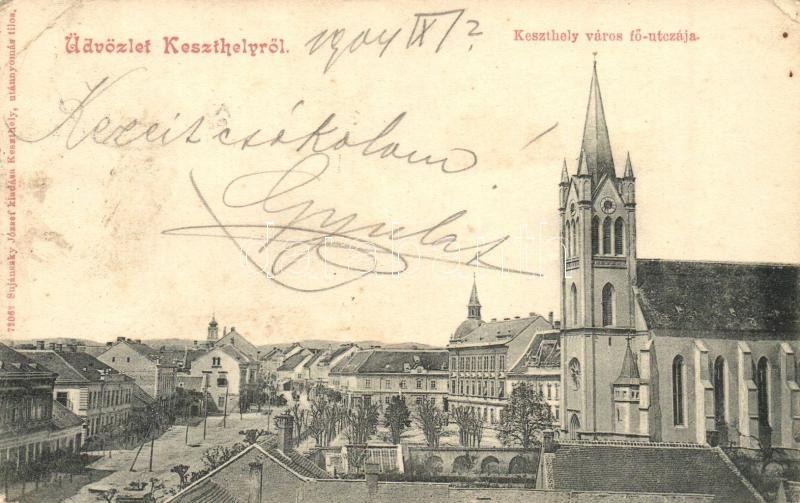 Üdvözlet Keszthelyről.
1904 IX/2
Keszthely város fő-utczája.
Kezeit csókolom
Gyula
Sujánszky József kiadása Keszthely, utánnyomás tilos.